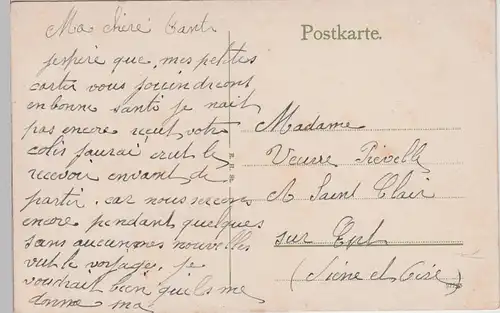 Ma chère Tante
Postkarte.
j'espère que, mes petites
cartes vous joiindreons
en bonne santé je n'ait
pas encore reçut votre
colis j'aurai crut le
recevoir envant de
partir. car nous serons
encore pendant quelques
sans aucunnes nouvelles
vut le voyage. je
voudrait bien qu'elle me
donne ma
Madame
Veuve
A Saint Clair
sur Ept
(Siene et Oise)